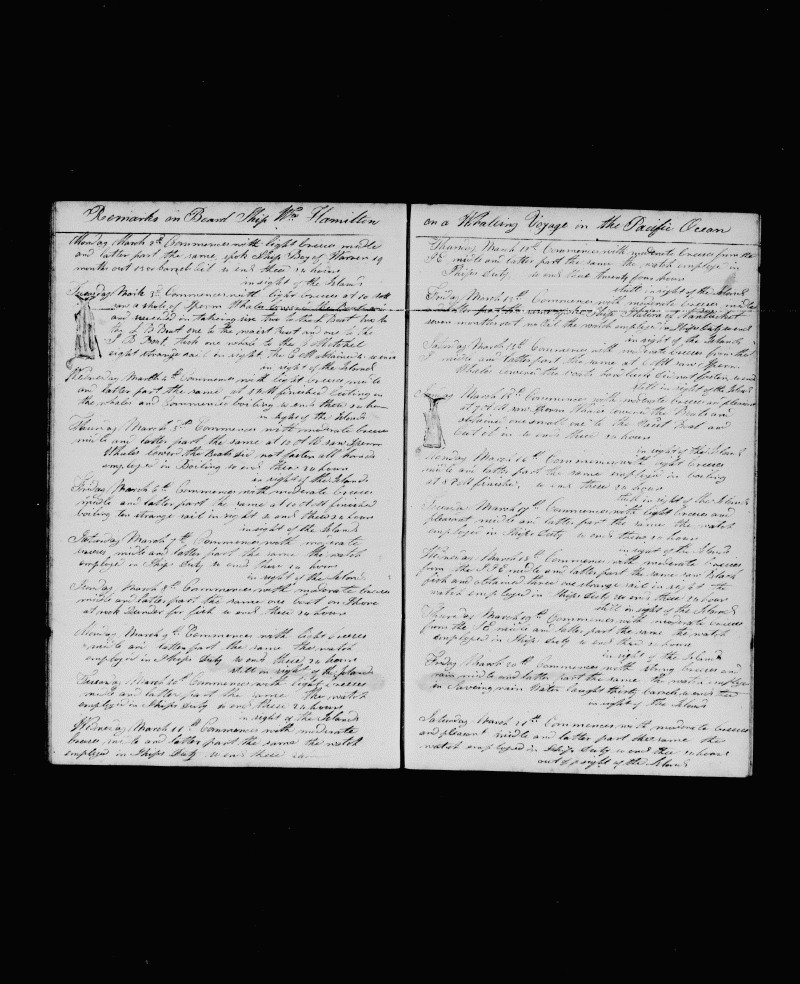 Remarks on Board Ship Wm Hamilton
Monday March 2d Commences with light breeses middle
and latter part the same, spoke Ship Boy of Warren 19
months out 1200 barrels oil so ends these 24 hours
in sight of the Islands
Tuesday March 3d Commences with light breeses at 10
saw a shole of Sperm Whales lowered the Boats
and succeeded in takeing six two to the L Boat two to
the L B Boat one to the waist boat and one to the
S B Boat, Took one whale to the Mitchel
eight strange sail in sight, the obtained
in sight of the Islands
Wednesday March 4th Commences with light breeses middle
and latter part the same at finished Cutting in
the whales and commences boiling so ends these 24 hours
in sight of the Islands
Thursday March 5th Commences with moderate breeses
middle and latter part the same at 10 saw Sperm
Whales lowered the Boats did not fasten all hands
employed in Boiling so ends these 24 hours
in sight of the Islands
Friday March 6th Commences with moderate breeses
middle and latter part the same at 10 finished
boiling ten strange sail in sight so ends these 24 hours
in sight of the Islands
Saturday March 7th Commences with moderate
breeses middle and latter part the same the watch
employed in Ships Duty so ends these 24 hours
in sight of the Islands
Sunday March 8th Commences with moderate breeses
middle and latter part the same one boat on Shore
at rock for fish so ends these 24 hours
Monday March 9th Commences with light breeses
middle and latter part the same the watch
employed in Ships Duty so ends these 24 hours
still in sight of the Islands
Tuesday March 10th Commences with light breeses
middle and latter part the same the watch
employed in Ships Duty so ends these 24 hours
in sight of the Islands
Wednesday March 11th Commences with moderate
breeses middle and latter part the same the watch
employed in Ships Duty so ends these
on a Whaleing Voyage in the Pacific Ocean
Thursday March 12th Commences with moderate breeses from the
S E middle and latter part the same the watch employed in
Ships Duty so ends these twenty four hours
still in sight of the Islands
Friday March 13th Commences with moderate breeses middle
and latter part Ship of Nantucket
seven months out no oil the watch employed in Ships Duty so ends
in sight of the Islands
Saturday March 14th Commences with moderate breeses from the
S middle and latter part the same at saw Sperm
Whales lowered the boats did not fasten so ends
still in sight of the Islands
Sunday March 15th Commences with moderate breeses and pleasant
at saw Sperm Whales lowered the Boats and
obtained one small one to the Waist Boat and
Cut it in so ends these 24 hours
in sight of the Islands
Monday March 16th Commences with light breeses
middle and latter part the same employed in boiling
at finished, so ends these 24 hours
still in sight of the Islands
Tuesday March 17th Commences with light breeses and
pleasant middle and latter part the same the watch
employed in Ships Duty so ends these 24 hours
in sight of the Islands
Wednesday March 18th Commences with moderate breeses
from the S E middle and latter part the same saw Black
fish and obtained three one strange sail in sight the
watch employed in Ships Duty so ends these 24 hours
still in sight of the Islands
Thursday March 19th Commences with moderate breeses
from the S E middle and latter part the same the watch
employed in Ships Duty so ends these 24 hours
in sight of the Islands
Friday March 20th Commences with strong breeses and
rain middle and latter part the same the watch employed
in Saveing rain Water Caught thirty barrels so ends these
in sight of the Islands
Saturday March 21st Commences with moderate breeses
and pleasant middle and latter part the same the
watch employed in Ships Duty so ends these 24 hours
out of sight of the Islands